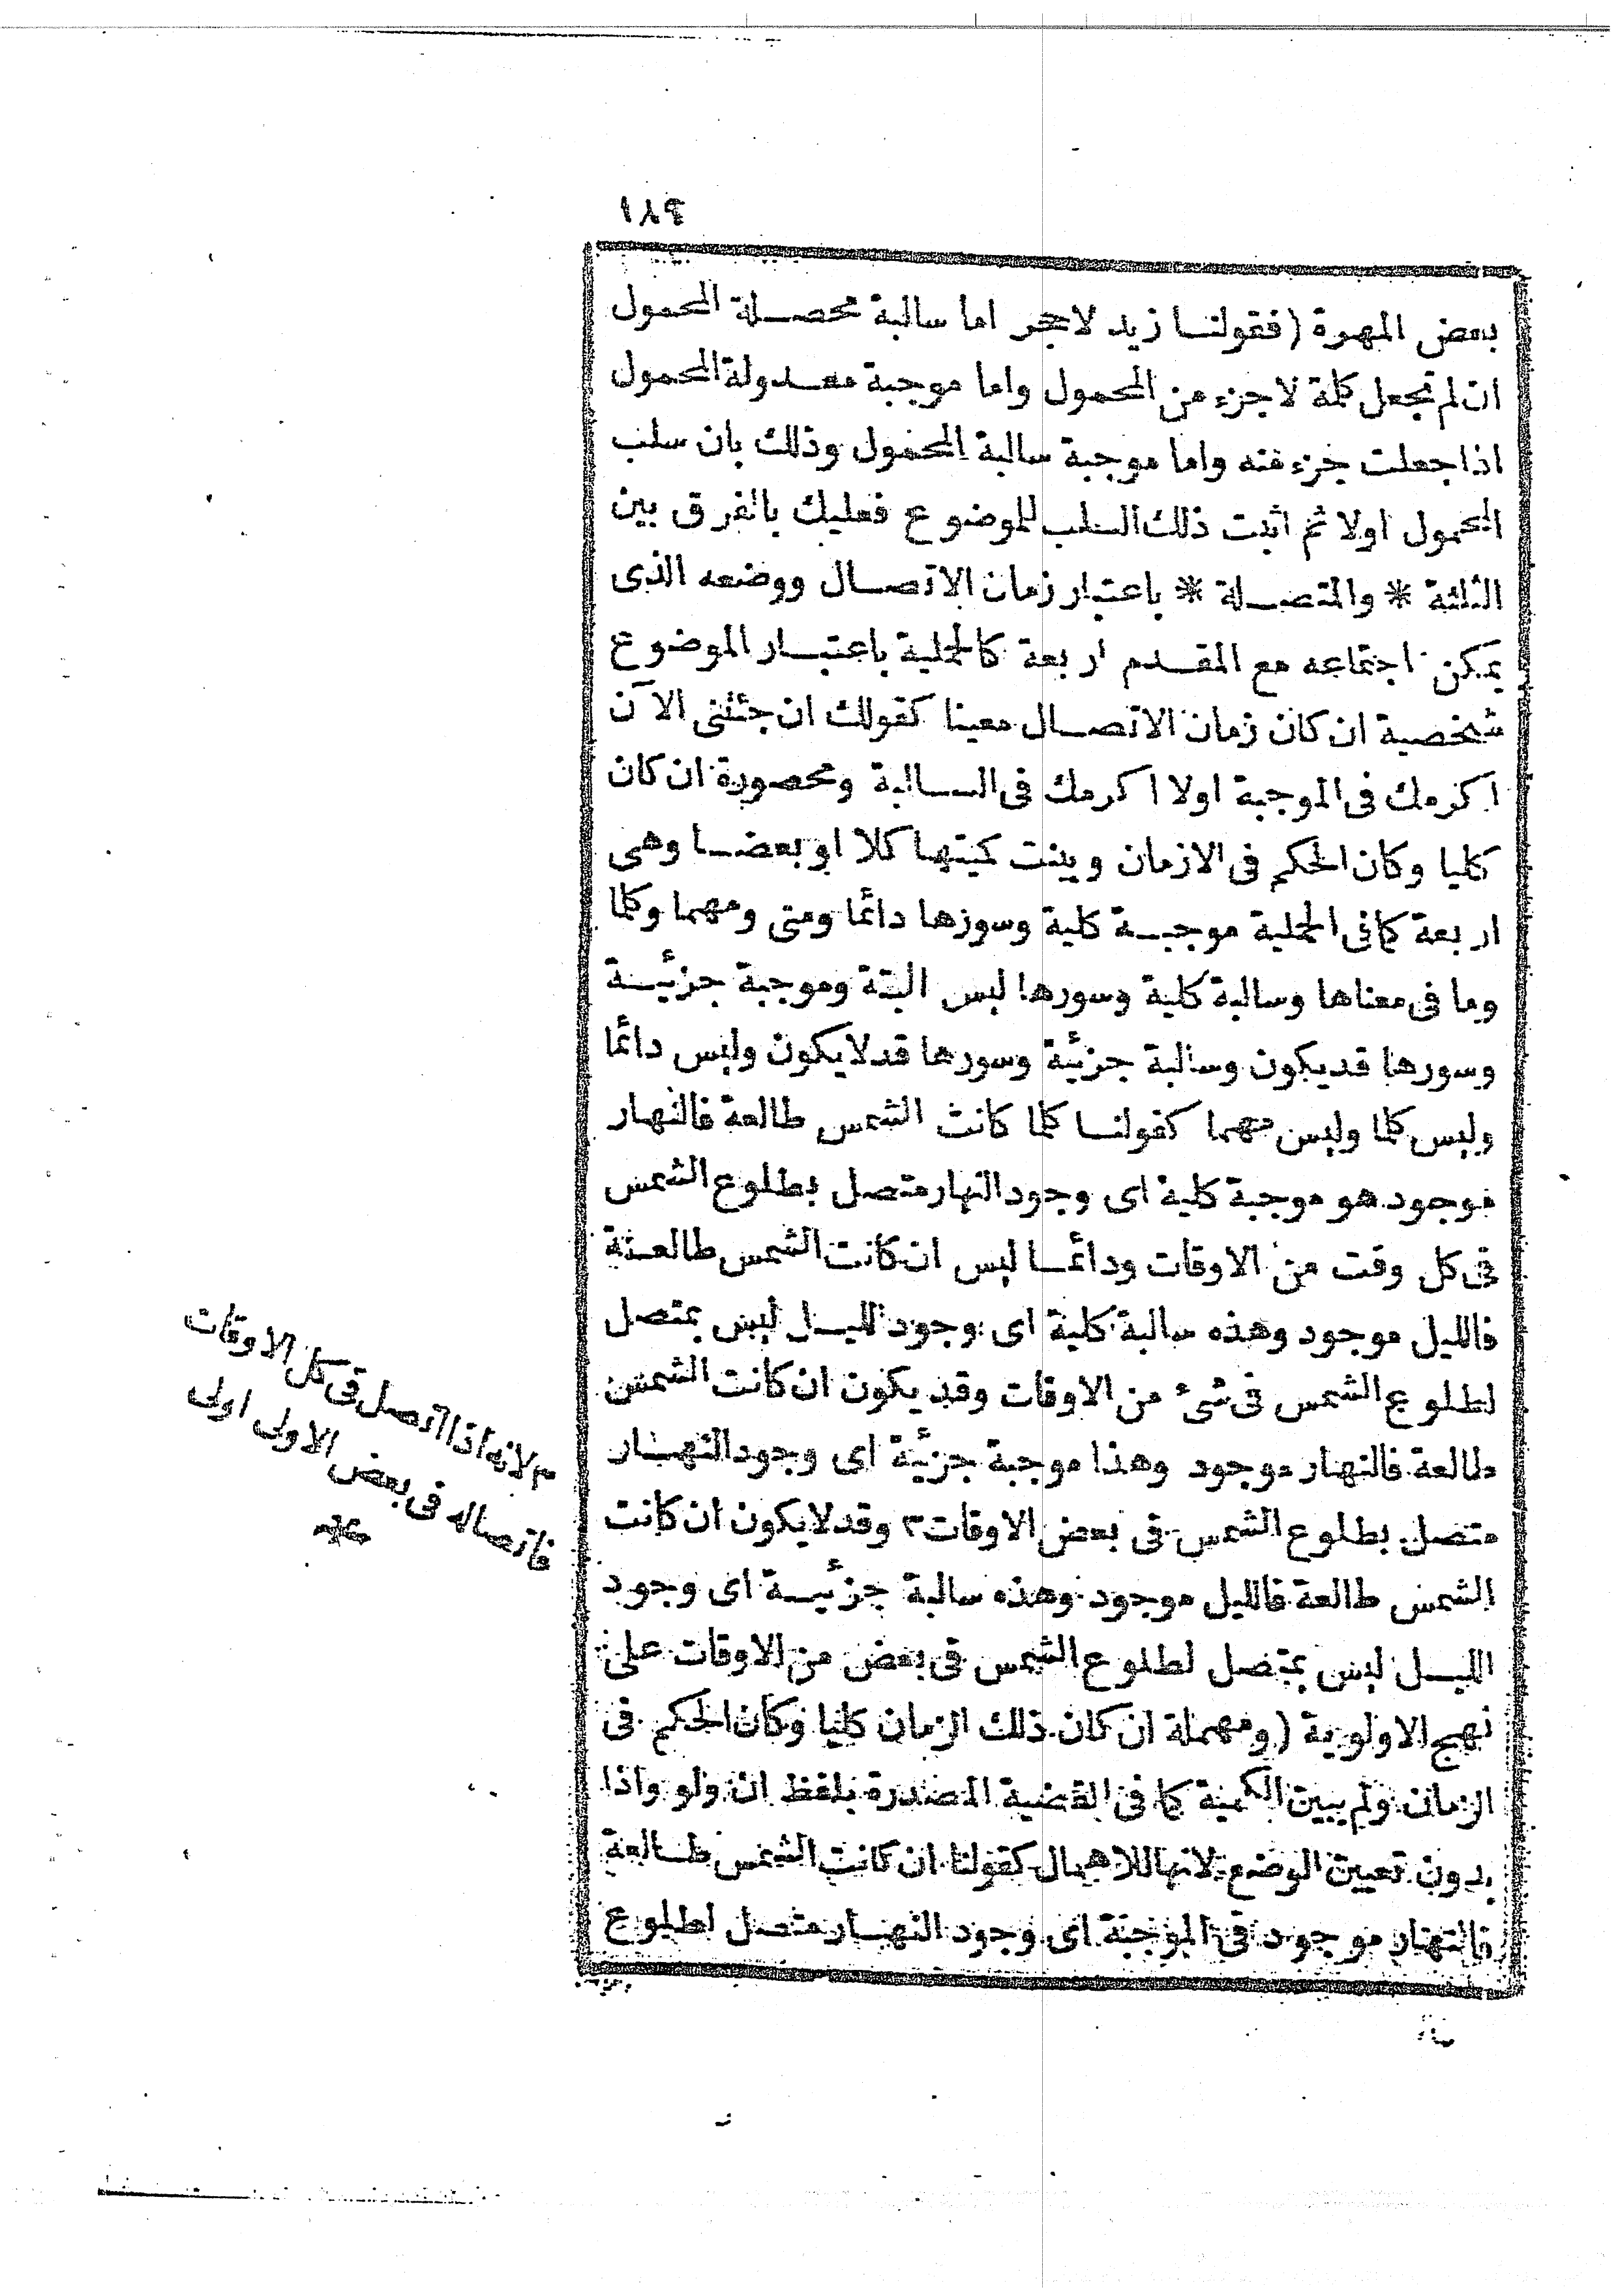 ١٨٩
بعض المهرة (فقولنا زيد لاحجر اما سالبة محصلة المحمول
ان لم تجعل كلمة لا جزء من المحمول واما موجبة معدولة المحمول
اذا جعلت جزء منه واما موجبة سالبة المحمول وذلك بان سلب
المحمول اولا ثم اثبت ذلك السلب للموضوع فعليك بالفرق بين
الثلثة * والمتصلة * باعتبار زمان الاتصال ووضعه الذى
يمكن اجتماعه مع المقدم اربعة كالحملية باعتبار الموضوع
شخصية ان كان زمان الاتصال معينا كقولك ان جئتنى الآن
اكرمك فى الموجبة اولا اكرمك فى السالبة ومحصورة ان كان
كليا وكان الحكم فى الازمان وبينت كميتها كلا او بعضا وهى
اربعة كما فى الحملية موجبة كلية وسورها دائما ومتى ومهما وكلما
وما فى معناها وسالبة كلية وسورها ليس البتة وموجبة جزئية
وسورها قد يكون وسالبة جزئية وسورها قد لا يكون وليس دائما
وليس كلما وليس مهما كقولنا كلما كانت الشمس طالعة فالنهار
موجود هو موجبة كلية اى وجود النهار متصل بطلوع الشمس
فى كل وقت من الاوقات ودائما ليس ان كانت الشمس طالعة
فالليل موجود وهذه سالبة كلية اى وجود الليل ليس بمتصل
لطلوع الشمس فى شئ من الاوقات وقد يكون ان كانت الشمس
طالعة فالنهار موجود وهذا موجبة جزئية اى وجود النهار
متصل بطلوع الشمس فى بعض الاوقات ٣ وقد لا يكون ان كانت
الشمس طالعة فالليل موجود وهذه سالبة جزئية اى وجود
الليل ليس بمتصل لطلوع الشمس فى بعض من الاوقات على
نهج الاولوية (ومهملة ان كان ذلك الزمان كليا وكان الحكم فى
الزمان ولم يبين الكمية كما فى القضية المصدرة بلفظ ان ولو واذا
بدون تعيين الوضع لانها للاهمال كقولنا ان كانت الشمس طالعة
فالنهار موجود فى الموجبة اى وجود النهار متصل لطلوع
٣ لانه اذا اتصل فى كل الاوقات
فاتصاله فى بعض الاولى اولى